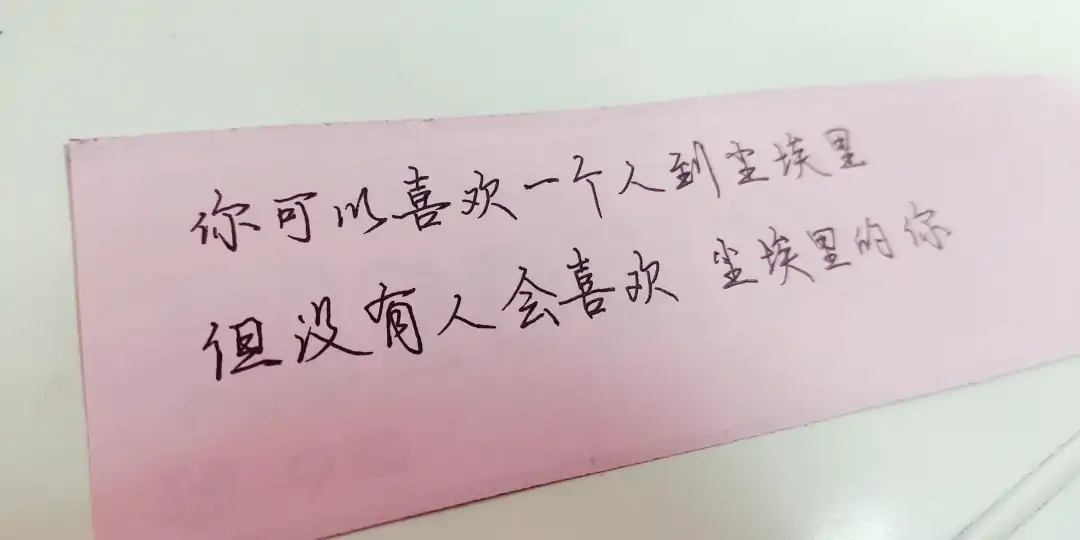 你可以喜欢一个人到尘埃里
但没有人会喜欢 尘埃里的你